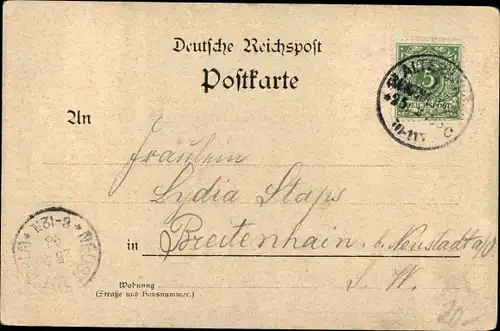 Deutsche Reichspost
Postkarte
5
An
Fräulein
Lydia Staps
in Breitenhain b. Neustadt a/O
S. W.
Wohnung
(Straße und Hausnummer.)
8-12